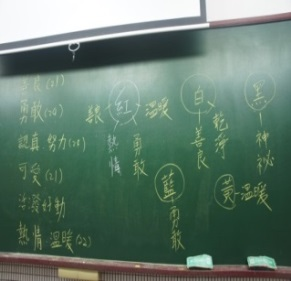 勇敢(20)
認真 努力(28)
可愛(21)
活潑好動
熱情 溫暖(22)
紅 溫暖
熱情
勇敢
白
乾淨
善良
黑
神祕
藍
勇敢
黃 溫暖